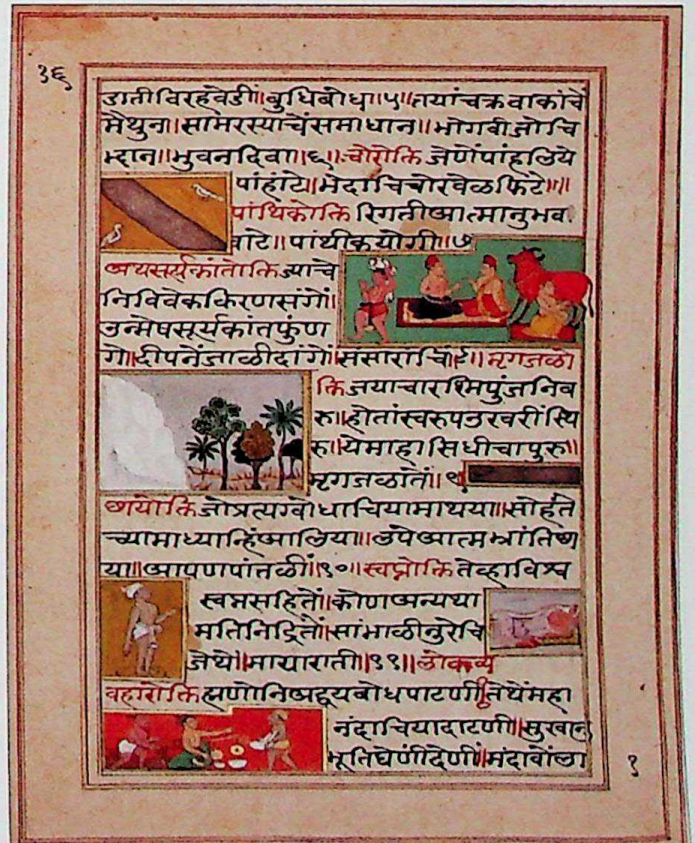 ३६
डातीविरहवेडीं॥बुधिबोधा॥५॥तयांचक्रवाकांचें
मैथुन॥सामरस्याचेंसमाधान॥भोगवीजोचि
म्दान॥भुवनदिवा॥६॥चोरोक्ति जेणेंपांहलिये
पांहांटे॥भेदाचिचोरवेळफिटे॥॥
पांथिकोक्ति रिगतीआत्मानुभव
वाटे॥पांथीकयोगी॥७
अथसूर्यकांतोक्तिज्याचे
निविवेककिरणसंगें॥
उन्मेषसूर्यकांतफुंण
गे॥दीपनेंजाळीदांगें॥संसाराचिं॥८॥मृगजळो
क्तिजयाचारश्मिपुंजनिब
रु॥होतांस्वरुपउखरींस्थि
रु॥येमाहासिधीचापुरु॥
मृगजळातें॥९
छायोक्तिजोप्रत्यग्बोधाचियामाथया॥सोहंते
च्यामाध्यान्हिंआलिया॥लपेआत्मभ्रांतिछा
या॥आपणपांतळीं॥१०॥स्वप्नोक्तितेव्हांविश्व
स्वप्नसहितें॥कोणअन्यथा
मतिनिद्रितें॥सांभाळीनुरेचि
जेथे॥मायाराती॥११॥लोकव्य
वहारोक्तिह्मणोनिअद्वयबोधपाटणीं॥तेथेंमहा
नंदाचियादाटणी॥सुखानु
भूतिघेणींदेणीं॥मंदावोंला
१